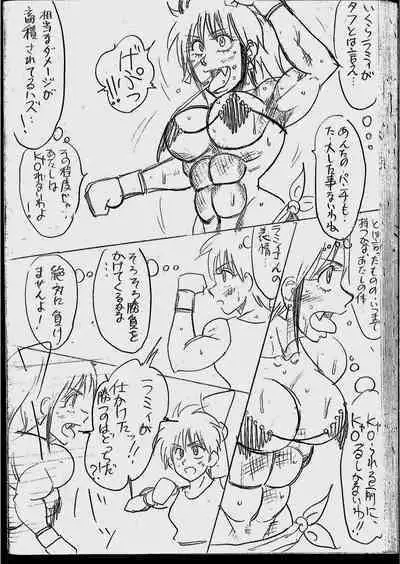 いくらラミィが
タフとは言え…
相当なダメージが
蓄積されてるハズ…!
げぷっ
あんたのパンチも
大した事ないわね
その程度じゃ…
あたしは
KOされないわよ
とは言ったものの…いつまで
持つかなあたしの体
ラミィさんの
表情…
そろそろ勝負を
かけてくるかな
絶対に負け
ませんよ!
KOられる前に、
KOするしかないわ!!
ラミィが
仕かけたッ!!
勝つのはどっちだ
?!